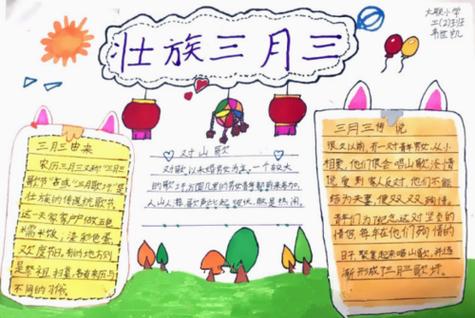 壮族三月三
大联小学
三月三由来
农历三月三又称"三月三
歌节"者或"三月歌圩"是
壮族的传统歌节
这一天家家户户做五色
糯米饭，染彩色蛋，
欢度节日，有的地方则
是祭祖、扫墓，各有来历与
不同的习俗。
对山歌
对歌以未婚男女为主，一个较大
的歌圩，方圆几里的男女青年都前来参加，
人山人海，歌声此起彼伏，很是热闹。
三月三传说
很久以前，有一对青年男女，从小
相爱，他们很会唱山歌，滂情
他受到家人反对，他们不能
结为夫妻，便双双殉情。
青年们为了纪念这对坚贞的
情侣，每年在他们殉情的
日子，聚集起来唱山歌，并逐
渐形成了三月三歌圩。